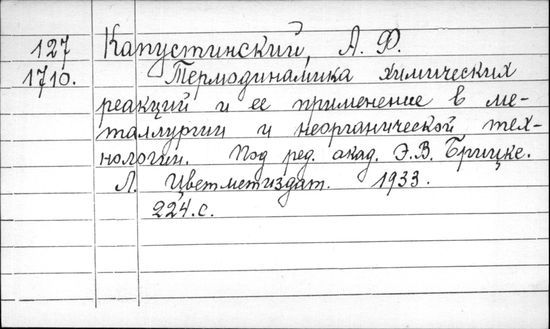 127 Капустинский, А. Ф.
1710. Термодинамика химических
реакций и ее применение в ме-
таллургии и неорганической тех-
нологии. Под ред. акад. Э.В. Брицке.
Л. Цветметиздат. 1933.
224.с.